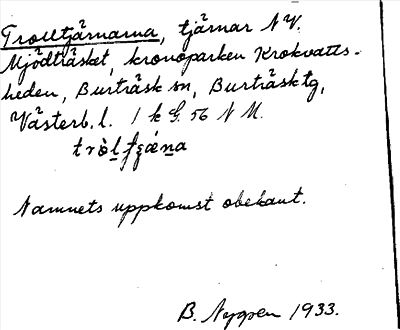 Trolltjärnarna, tjärnar N V.
Mjödträsket, kronoparken Krokvatts-
heden, Burträsk sn, Burträsk tg,
Västerb. l. 1 k G. 56 N M.
Namnets uppkomst obekant.
B. Nyppen 1933.